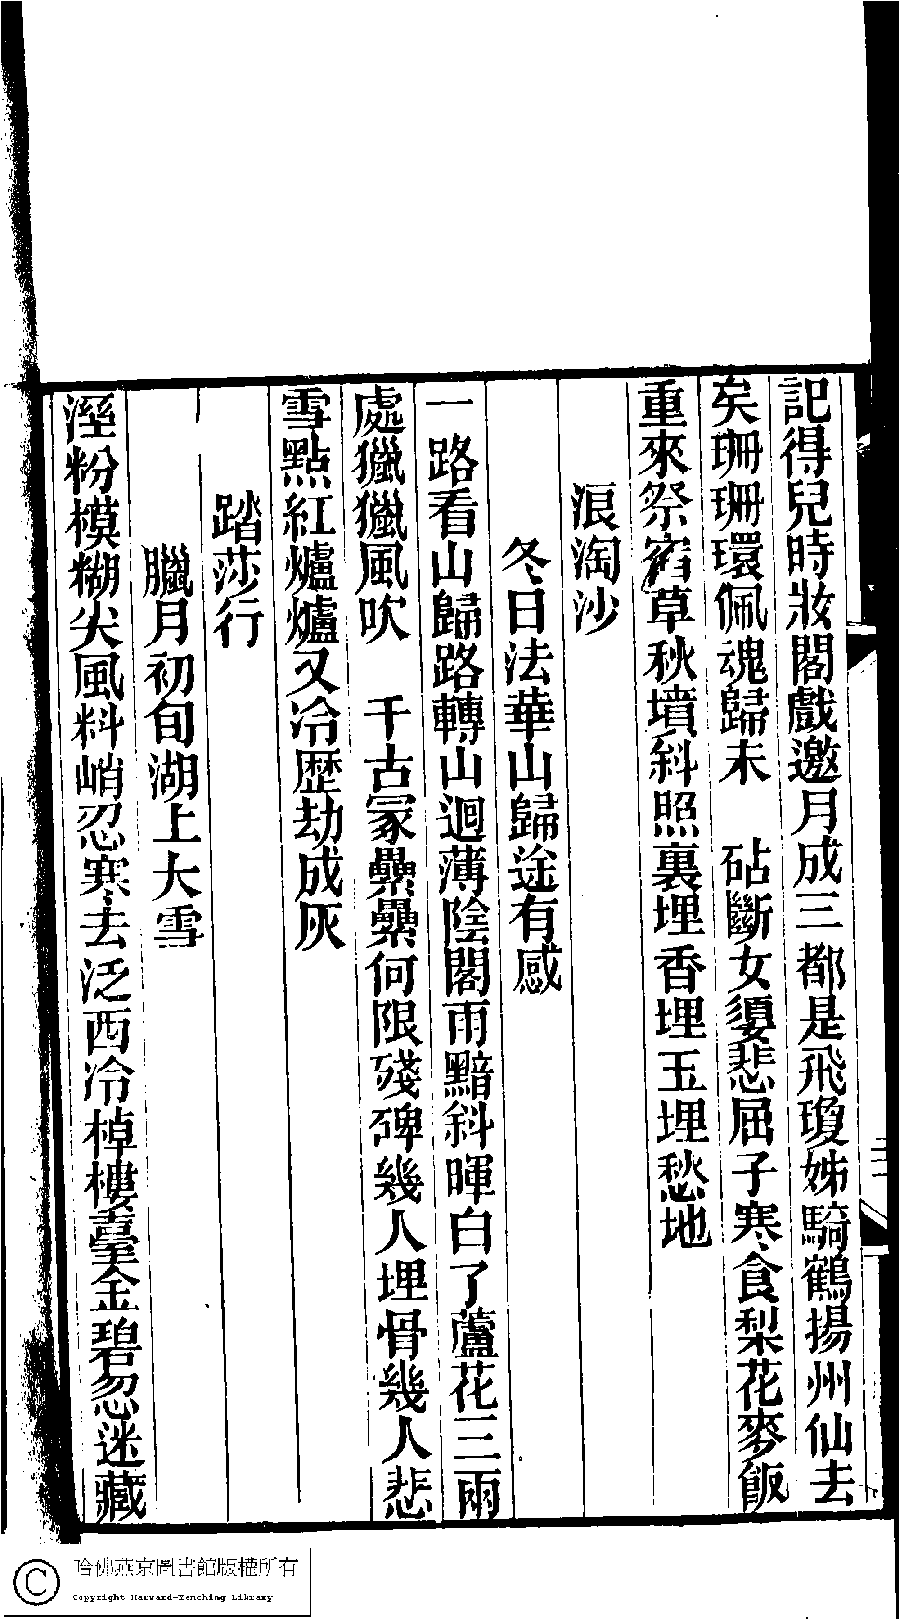 記得兒時妝閣戲邀月成三都是飛瓊姊騎鶴揚州仙去
矣珊珊環佩魂歸未　砧斷女嬃悲屈子寒食梨花麥飯
重來祭宿草秋墳斜照裏埋香埋玉埋愁地
浪淘沙
冬日法華山歸途有感
一路看山歸路轉山迴薄陰閣雨黯斜暉白了蘆花三兩
處獵獵風吹　千古冢纍纍何限殘碑幾人埋骨幾人悲
雪點紅爐爐又冷歷劫成灰
踏莎行
臘月初旬湖上大雪
溼粉模糊尖風料峭忍寒去泛西泠棹樓臺金碧忽迷藏
哈佛燕京圖書館版權所有
Copyright Harvard-Yenching Library